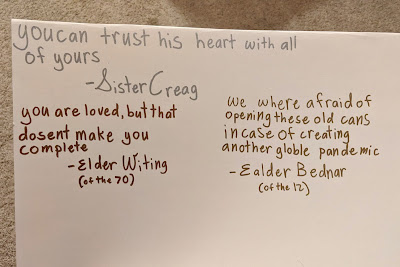 youcan trust his heart with all
of yours
-Sister Creag
you are loved, but that
dosent make you
complete
-Elder Witing
(of the 70)
we where afraid of
opening these old cans
in case of creating
another globle pandemic
-Ealder Bednar
(of the 12)